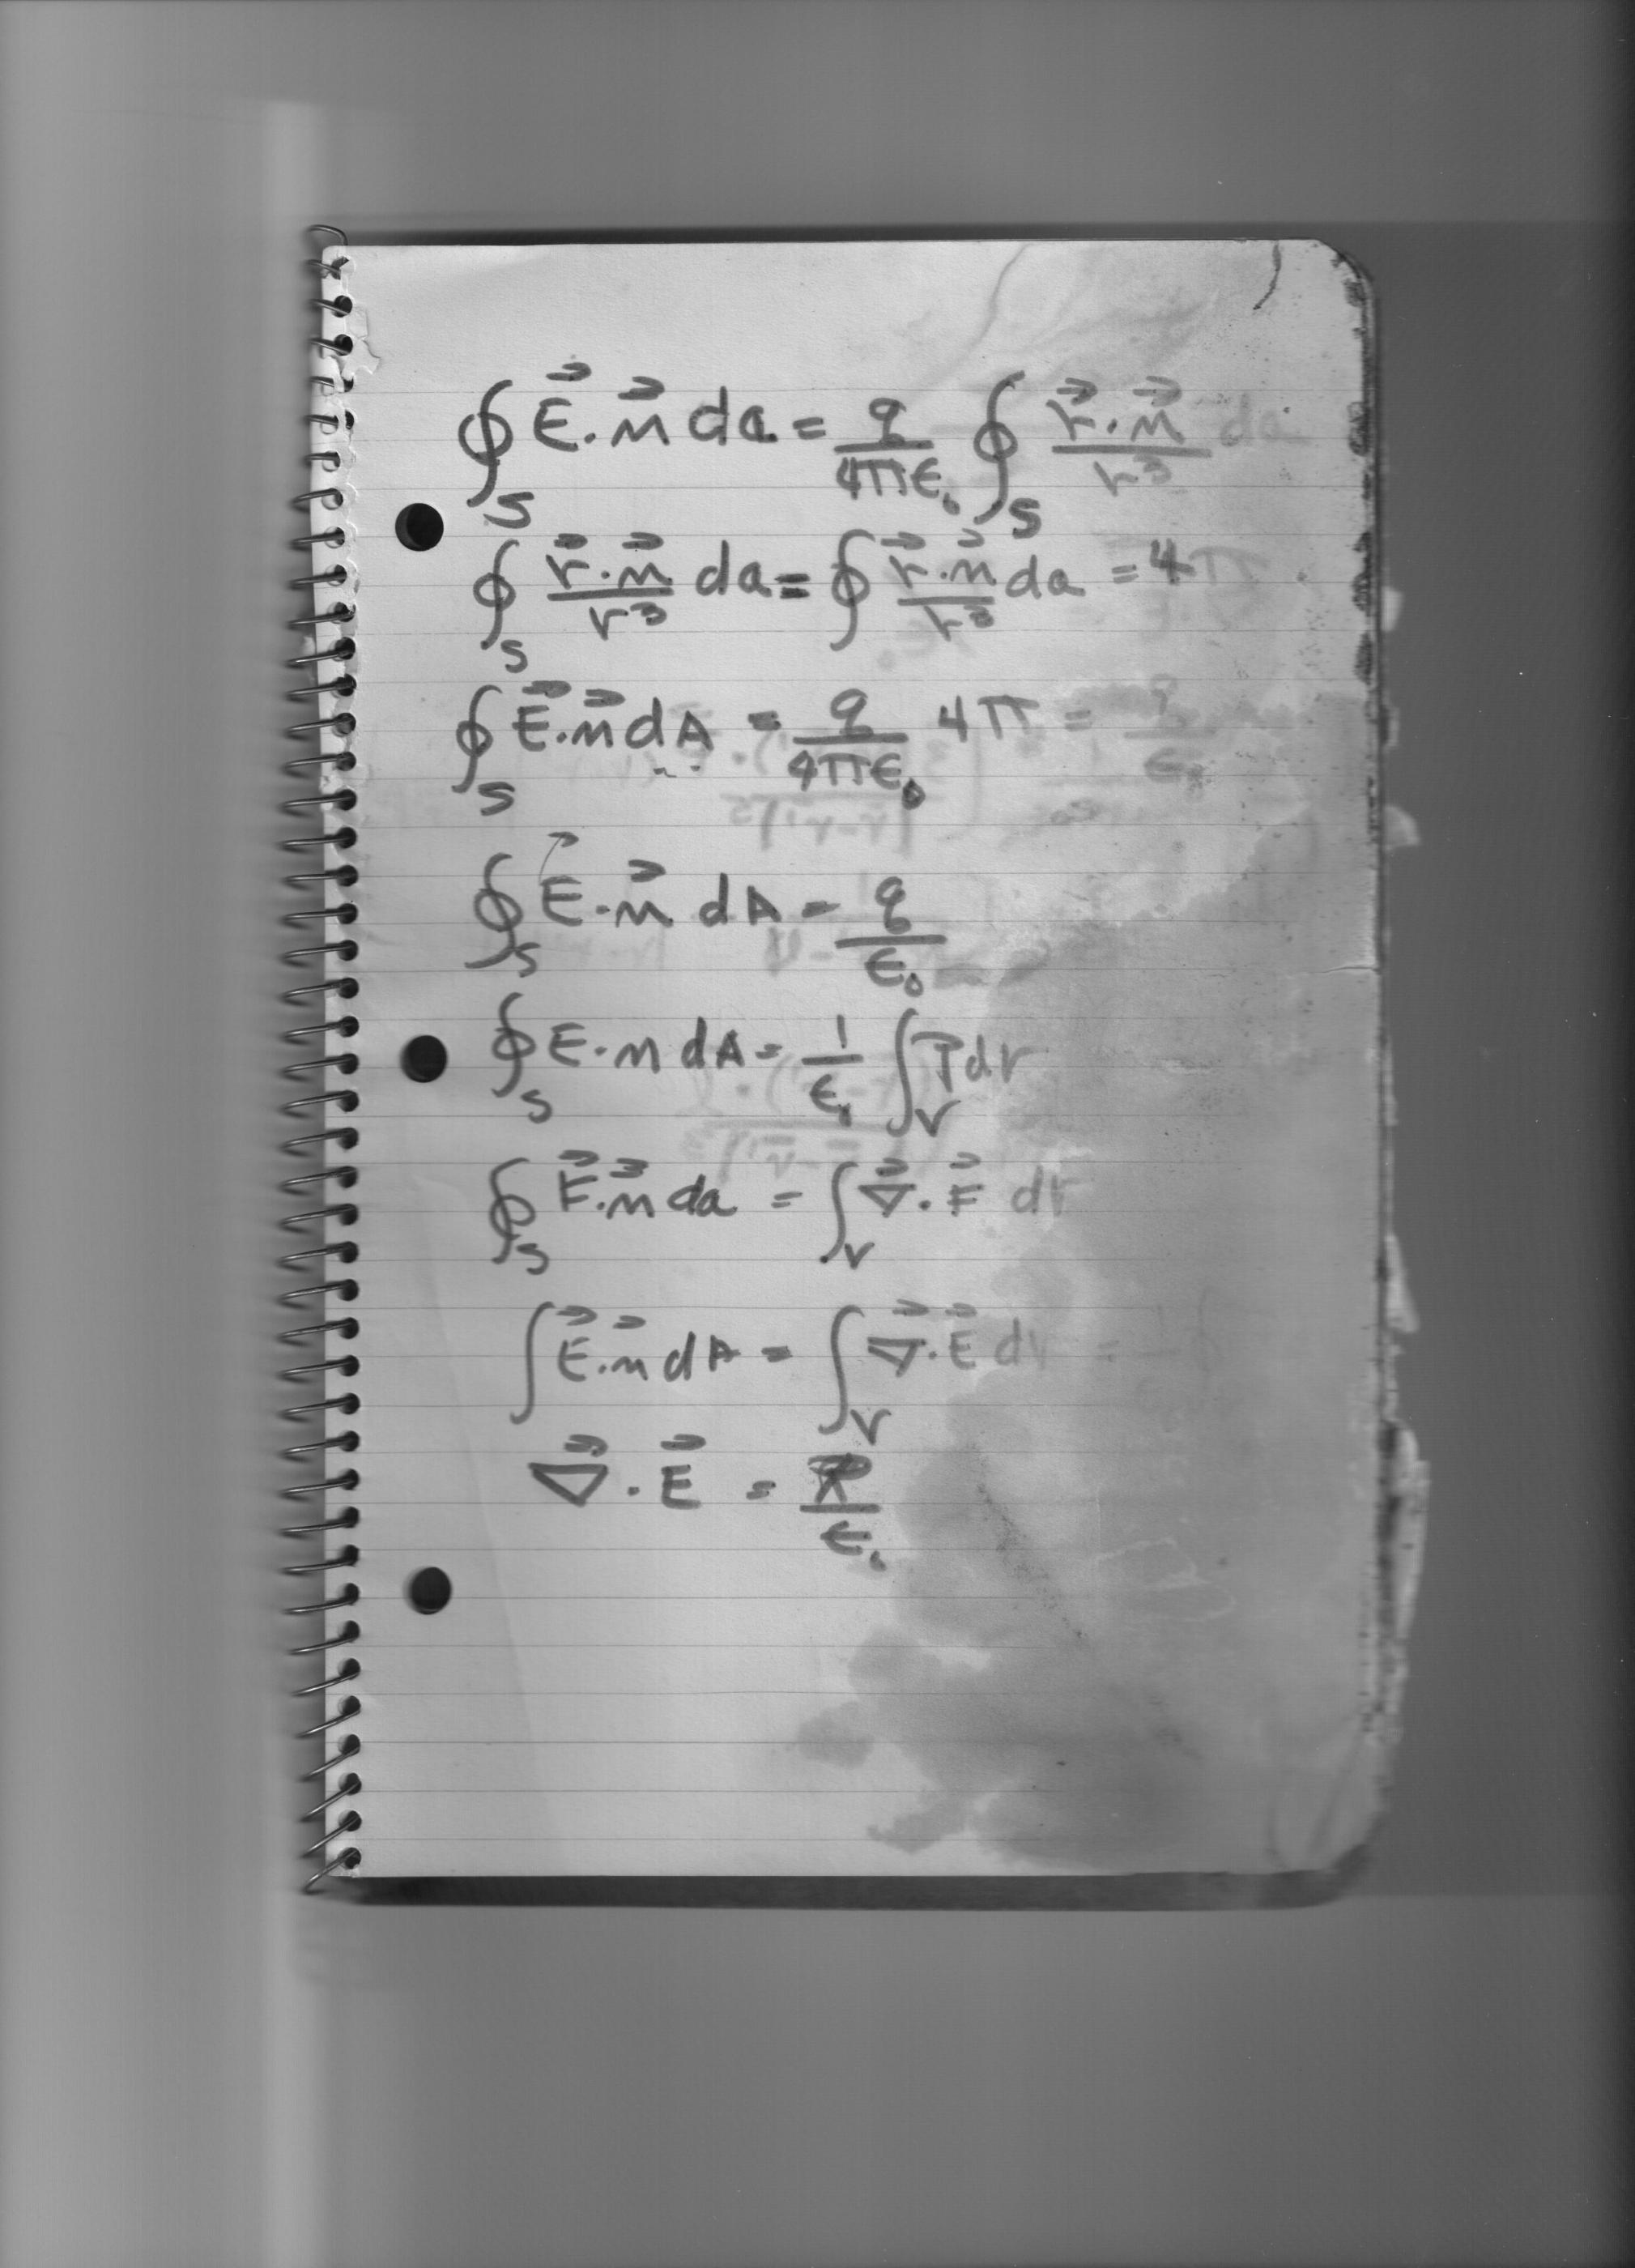 ∮_S E⃗·n⃗ da = q/(4πε₀) ∮_S (r⃗·n⃗)/r³ da
∮_S (r⃗·n⃗)/r³ da = ∮ (r⃗·n⃗)/r³ da = 4π
∮_S E⃗·n⃗ dA = q/(4πε₀) 4π = q/ε₀
∮_S E⃗·n⃗ dA = q/ε₀
∮_S E·n dA = 1/ε₀ ∫_V ρ dv
∮_S F⃗·n⃗ da = ∫_V ∇⃗·F⃗ dv
∫ E⃗·n⃗ dA = ∫_V ∇⃗·E⃗ dv =
∇⃗·E⃗ = ρ/ε₀